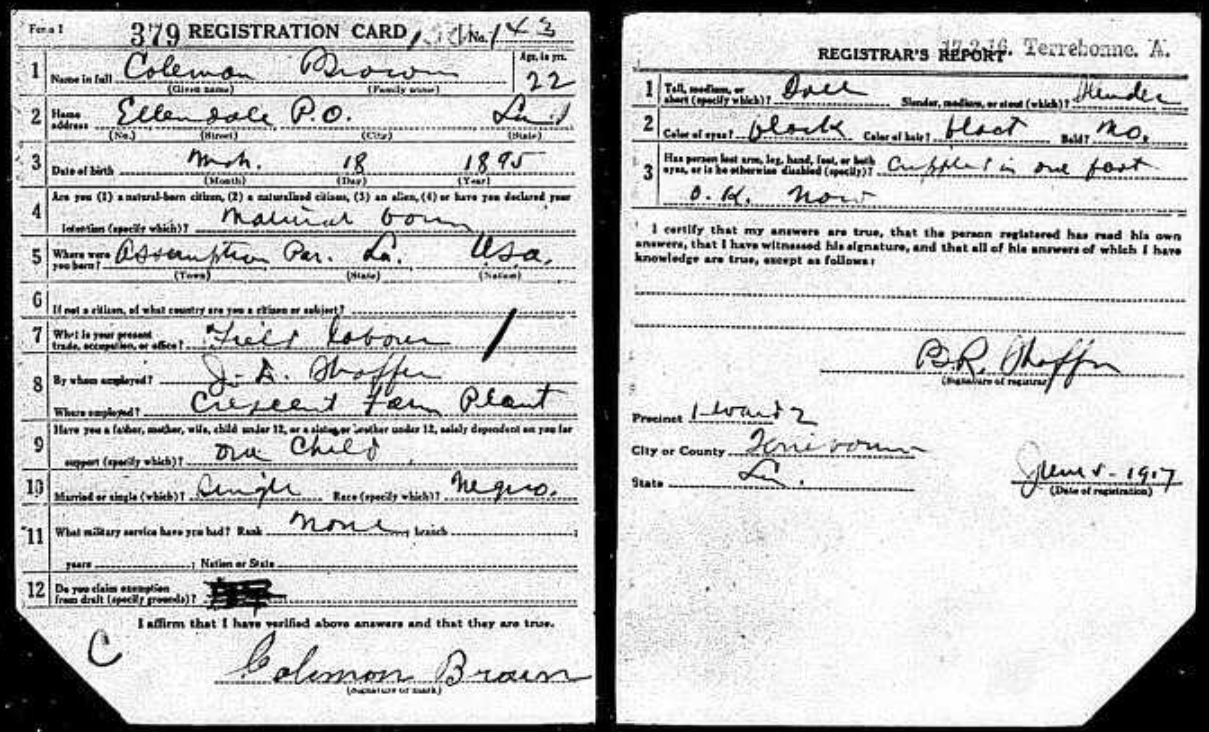 Form 1 379 REGISTRATION CARD No. 143
1 Name in full Coleman Brown Age, in yrs. 22
(Given name) (Family name)
2 Home address Ellendale P.O. La
(No.) (Street) (City) (State)
3 Date of birth Mch. 18 1895
(Month) (Day) (Year)
4 Are you (1) a natural-born citizen, (2) a naturalized citizen, (3) an alien, (4) or have you declared your
intention (specify which)? Natural born
5 Where were you born? Assumption Par. La. Usa.
(Town) (State) (Nation)
6 If not a citizen, of what country are you a citizen or subject?
7 What is your present trade, occupation, or office? Field laborer
8 By whom employed? Shaffer
Where employed? Crescent Farm Plant
9 Have you a father, mother, wife, child under 12, or a sister or brother under 12, solely dependent on you for
support (specify which)? one Child
10 Married or single (which)? Single Race (specify which)? Negro.
11 What military service have you had? Rank None, branch ;
years ; Nation or State
12 Do you claim exemption from draft (specify grounds)?
I affirm that I have verified above answers and that they are true.
C
Colemon Brown
(Signature or mark)
REGISTRAR'S REPORT 17-2-16. Terrebonne. A.
1 Tall, medium, or short (specify which)? Slender, medium, or stout (which)? Slender
2 Color of eyes? black Color of hair? black Bald? No.
3 Has person lost arm, leg, hand, foot, or both eyes, or is he otherwise disabled (specify)? in one foot
O. K. now
I certify that my answers are true, that the person registered has read his own
answers, that I have witnessed his signature, and that all of his answers of which I have
knowledge are true, except as follows:
B.R. Shaffer
(Signature of registrar)
Precinct 1 ward 2
City or County Terrebonne
State La.
June 5 - 1917
(Date of registration)